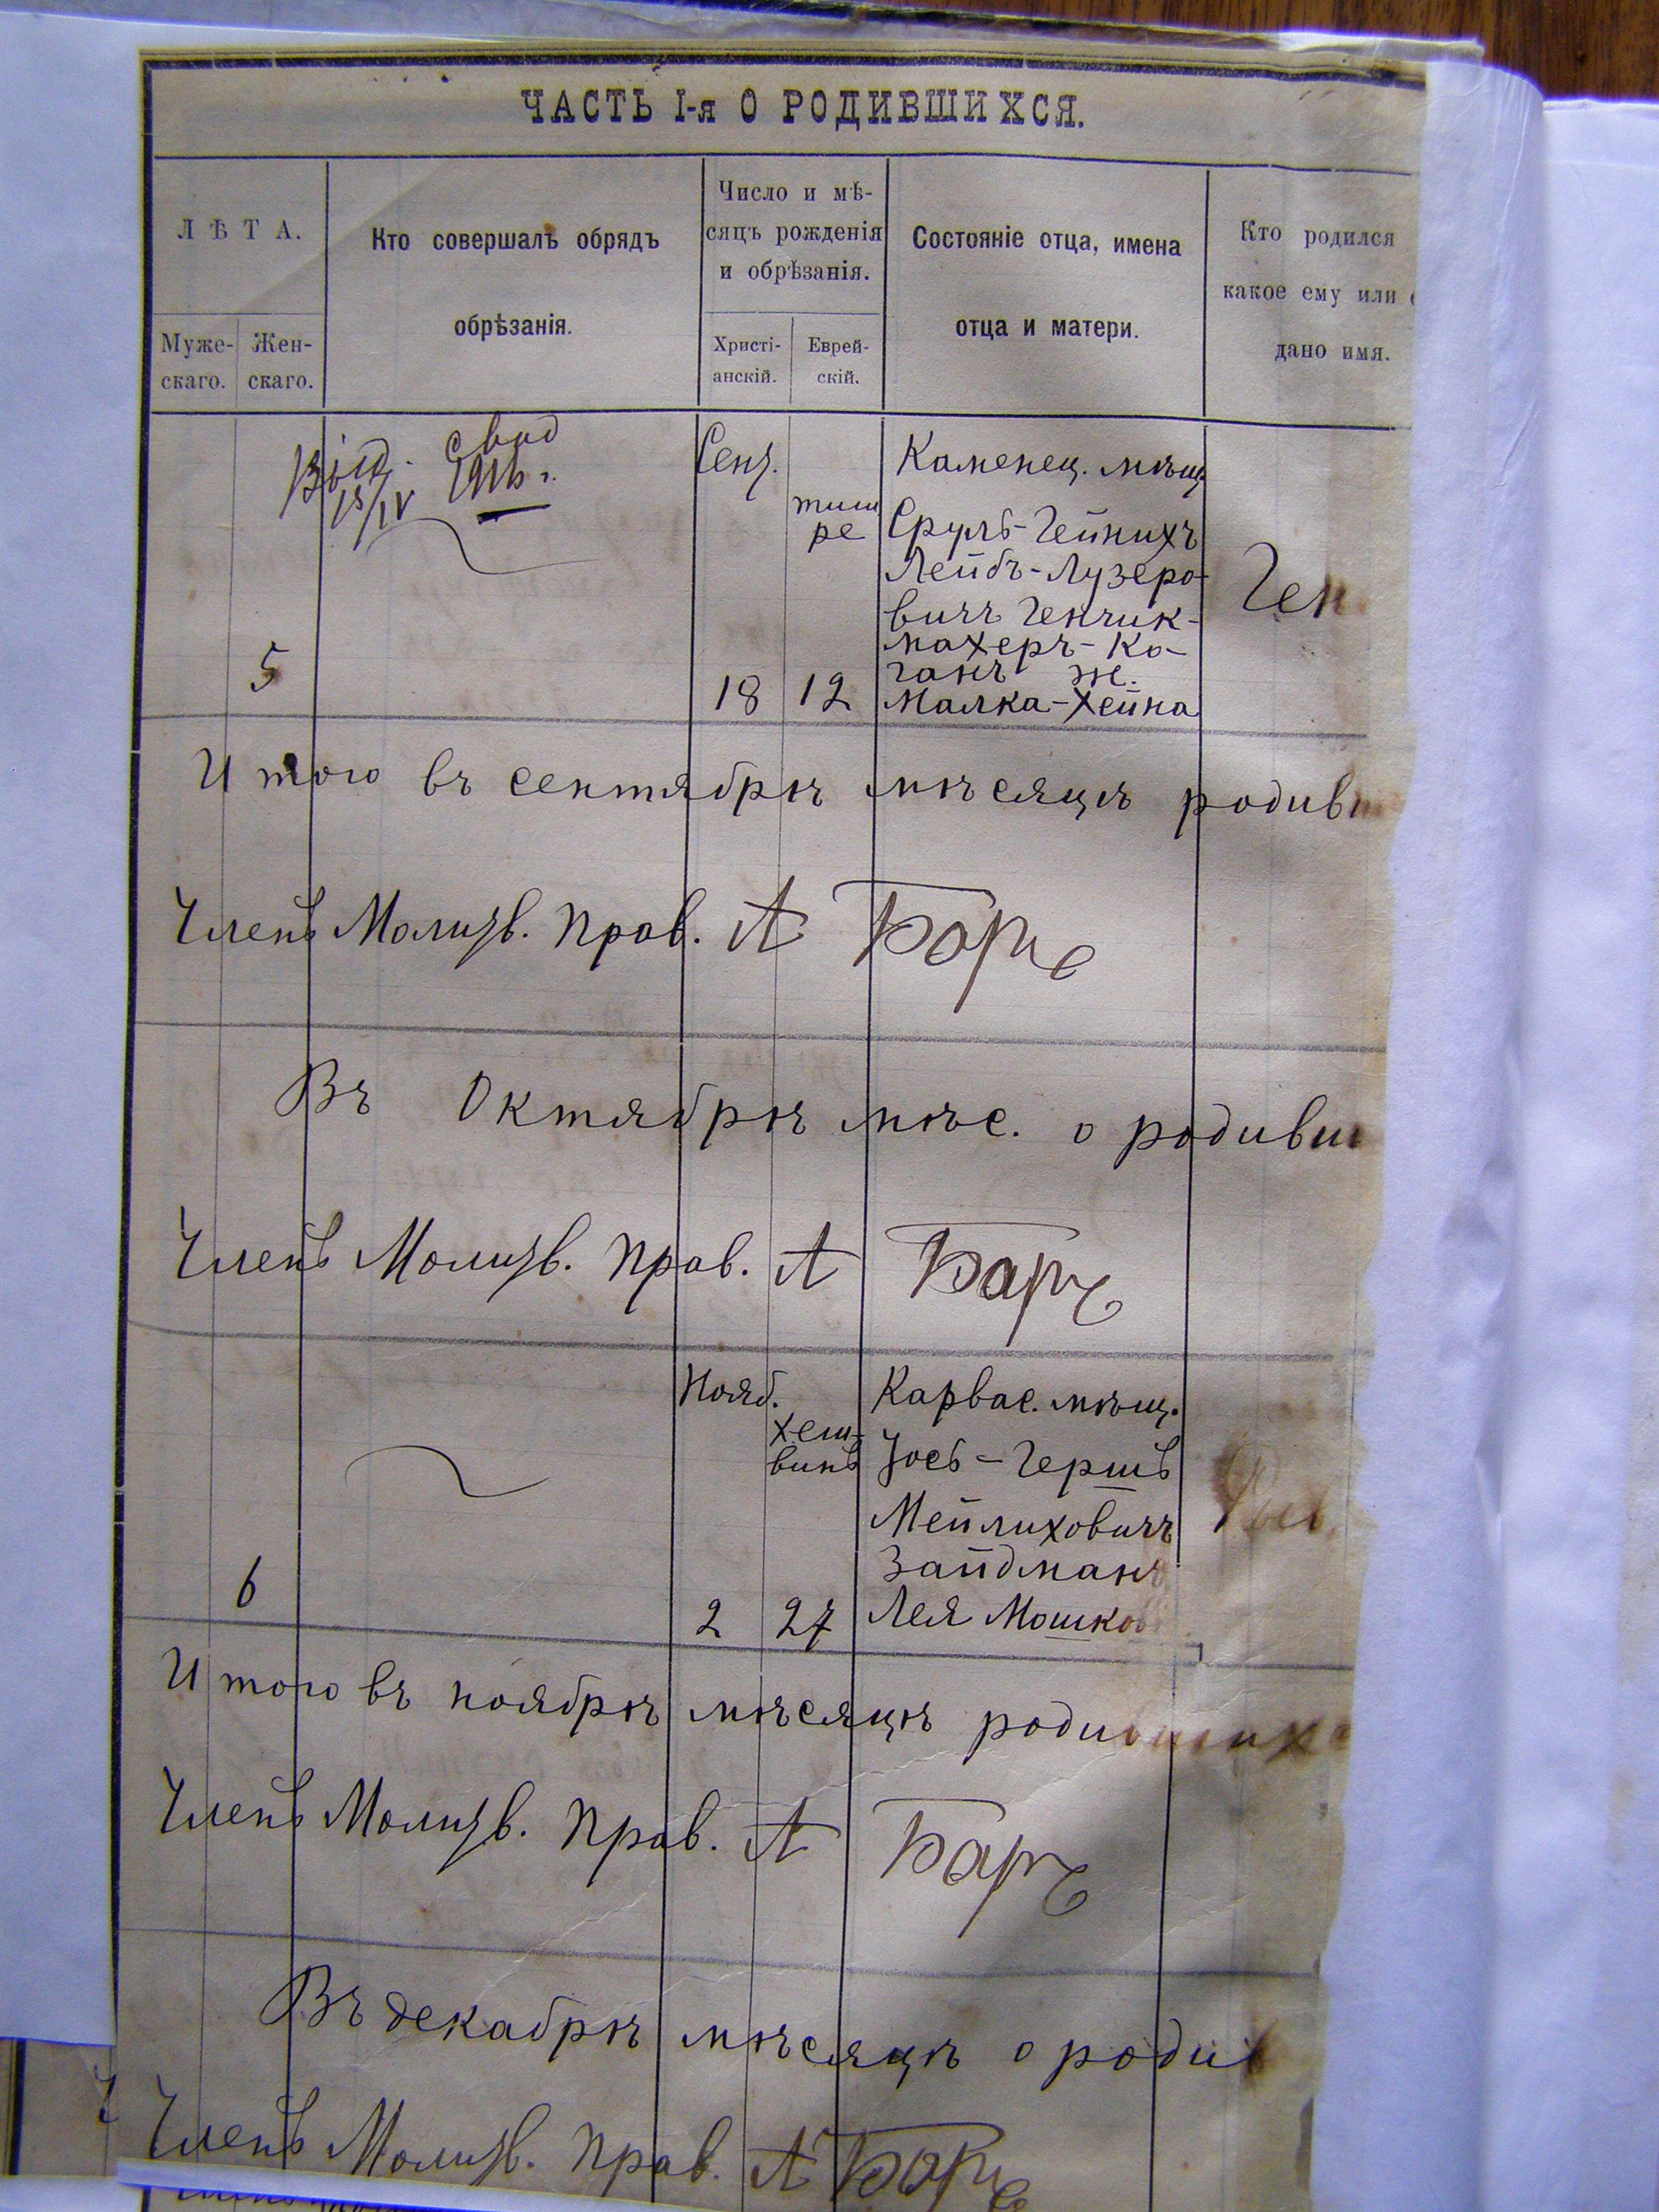 ЧАСТЬ I-я О РОДИВШИХСЯ.
ЛѢТА.
Муже-
скаго.
Жен-
скаго.
Кто совершалъ обрядъ
обрѣзанія.
Число и мѣ-
сяцъ рожденія
и обрѣзанія.
Христі-
анскій.
Еврей-
скій.
Состояніе отца, имена
отца и матери.
Кто родился
какое ему или
дано имя.
5
свид
13/IV
Сент.
18
тиш
ре
12
Каменец. мѣщ.
Сруль-Гейнихъ
Лейбъ-Лузеро-
вичъ Генчик-
махеръ-Ко-
ганъ ж.
Малка-Хейна
Ген
Итого въ сентябрѣ мѣсяцѣ родивш
Членъ Молитв. Прав. А Баръ
Въ Октябрѣ мѣс. о родивш
Членъ Молитв. Прав. А Баръ
6
Нояб.
2
хеш-
винъ
27
Карвас. мѣщ.
Іось-Гершъ
Мейлиховичъ
Зайдманъ
Лея Мошков
Итого въ ноябрѣ мѣсяцѣ родившихс
Членъ Молитв. Прав. А Баръ
Въ декабрѣ мѣсяцѣ о родив
Членъ Молитв. Прав. А Баръ